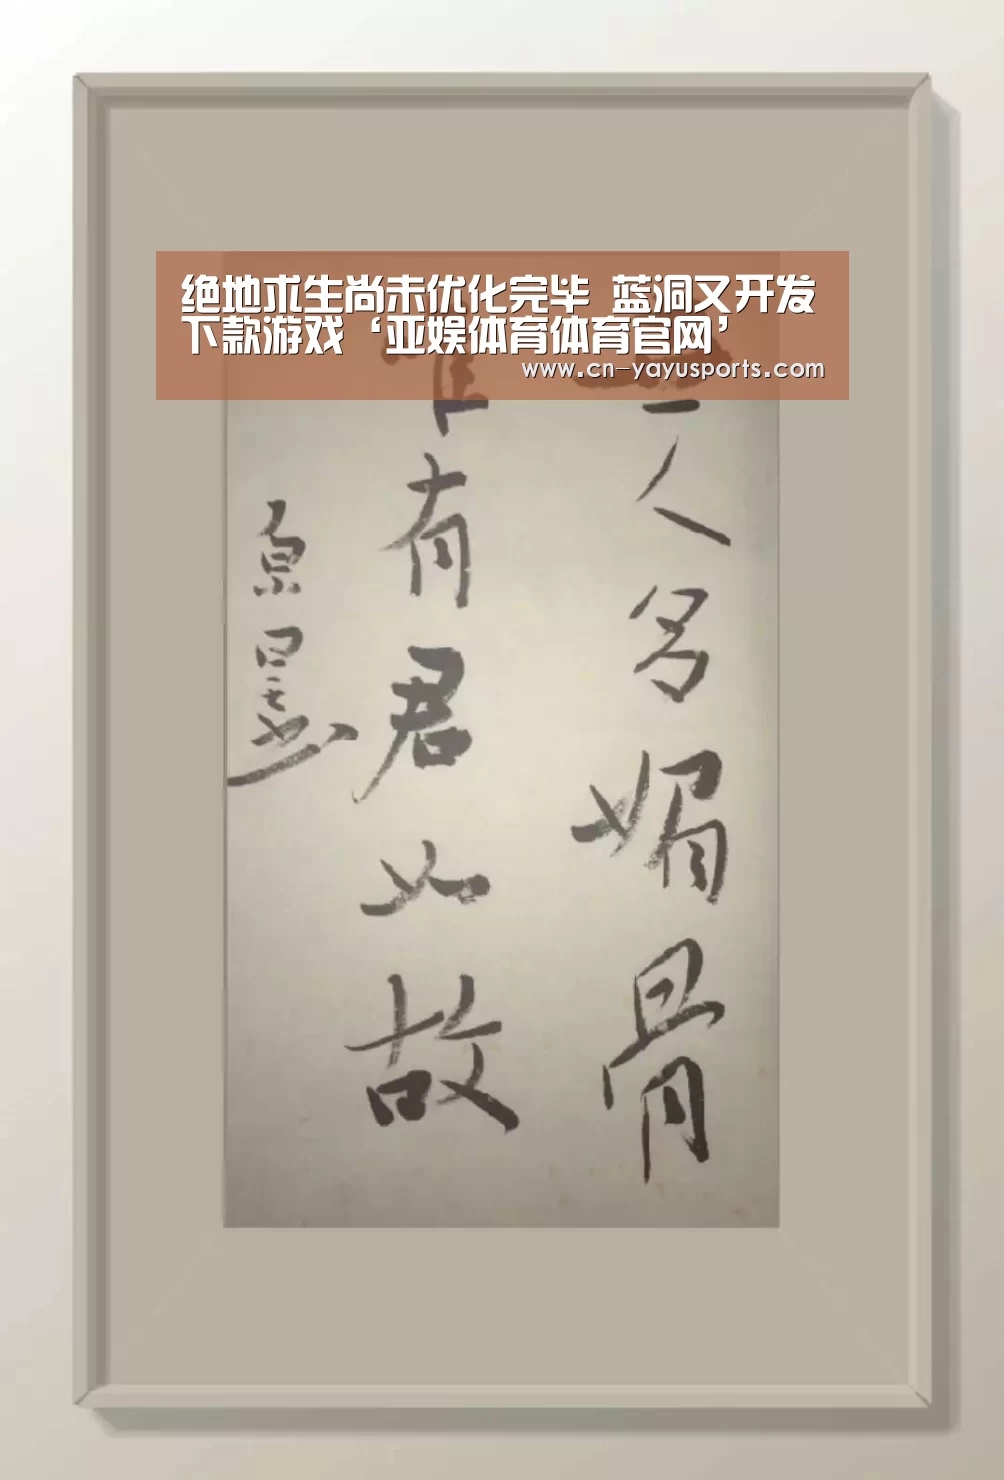 绝地求生尚未优化完毕 蓝洞又开发
下款游戏‘亚娱体育体育官网’
www.cn-yayusports.com
人多媚骨
有君如故